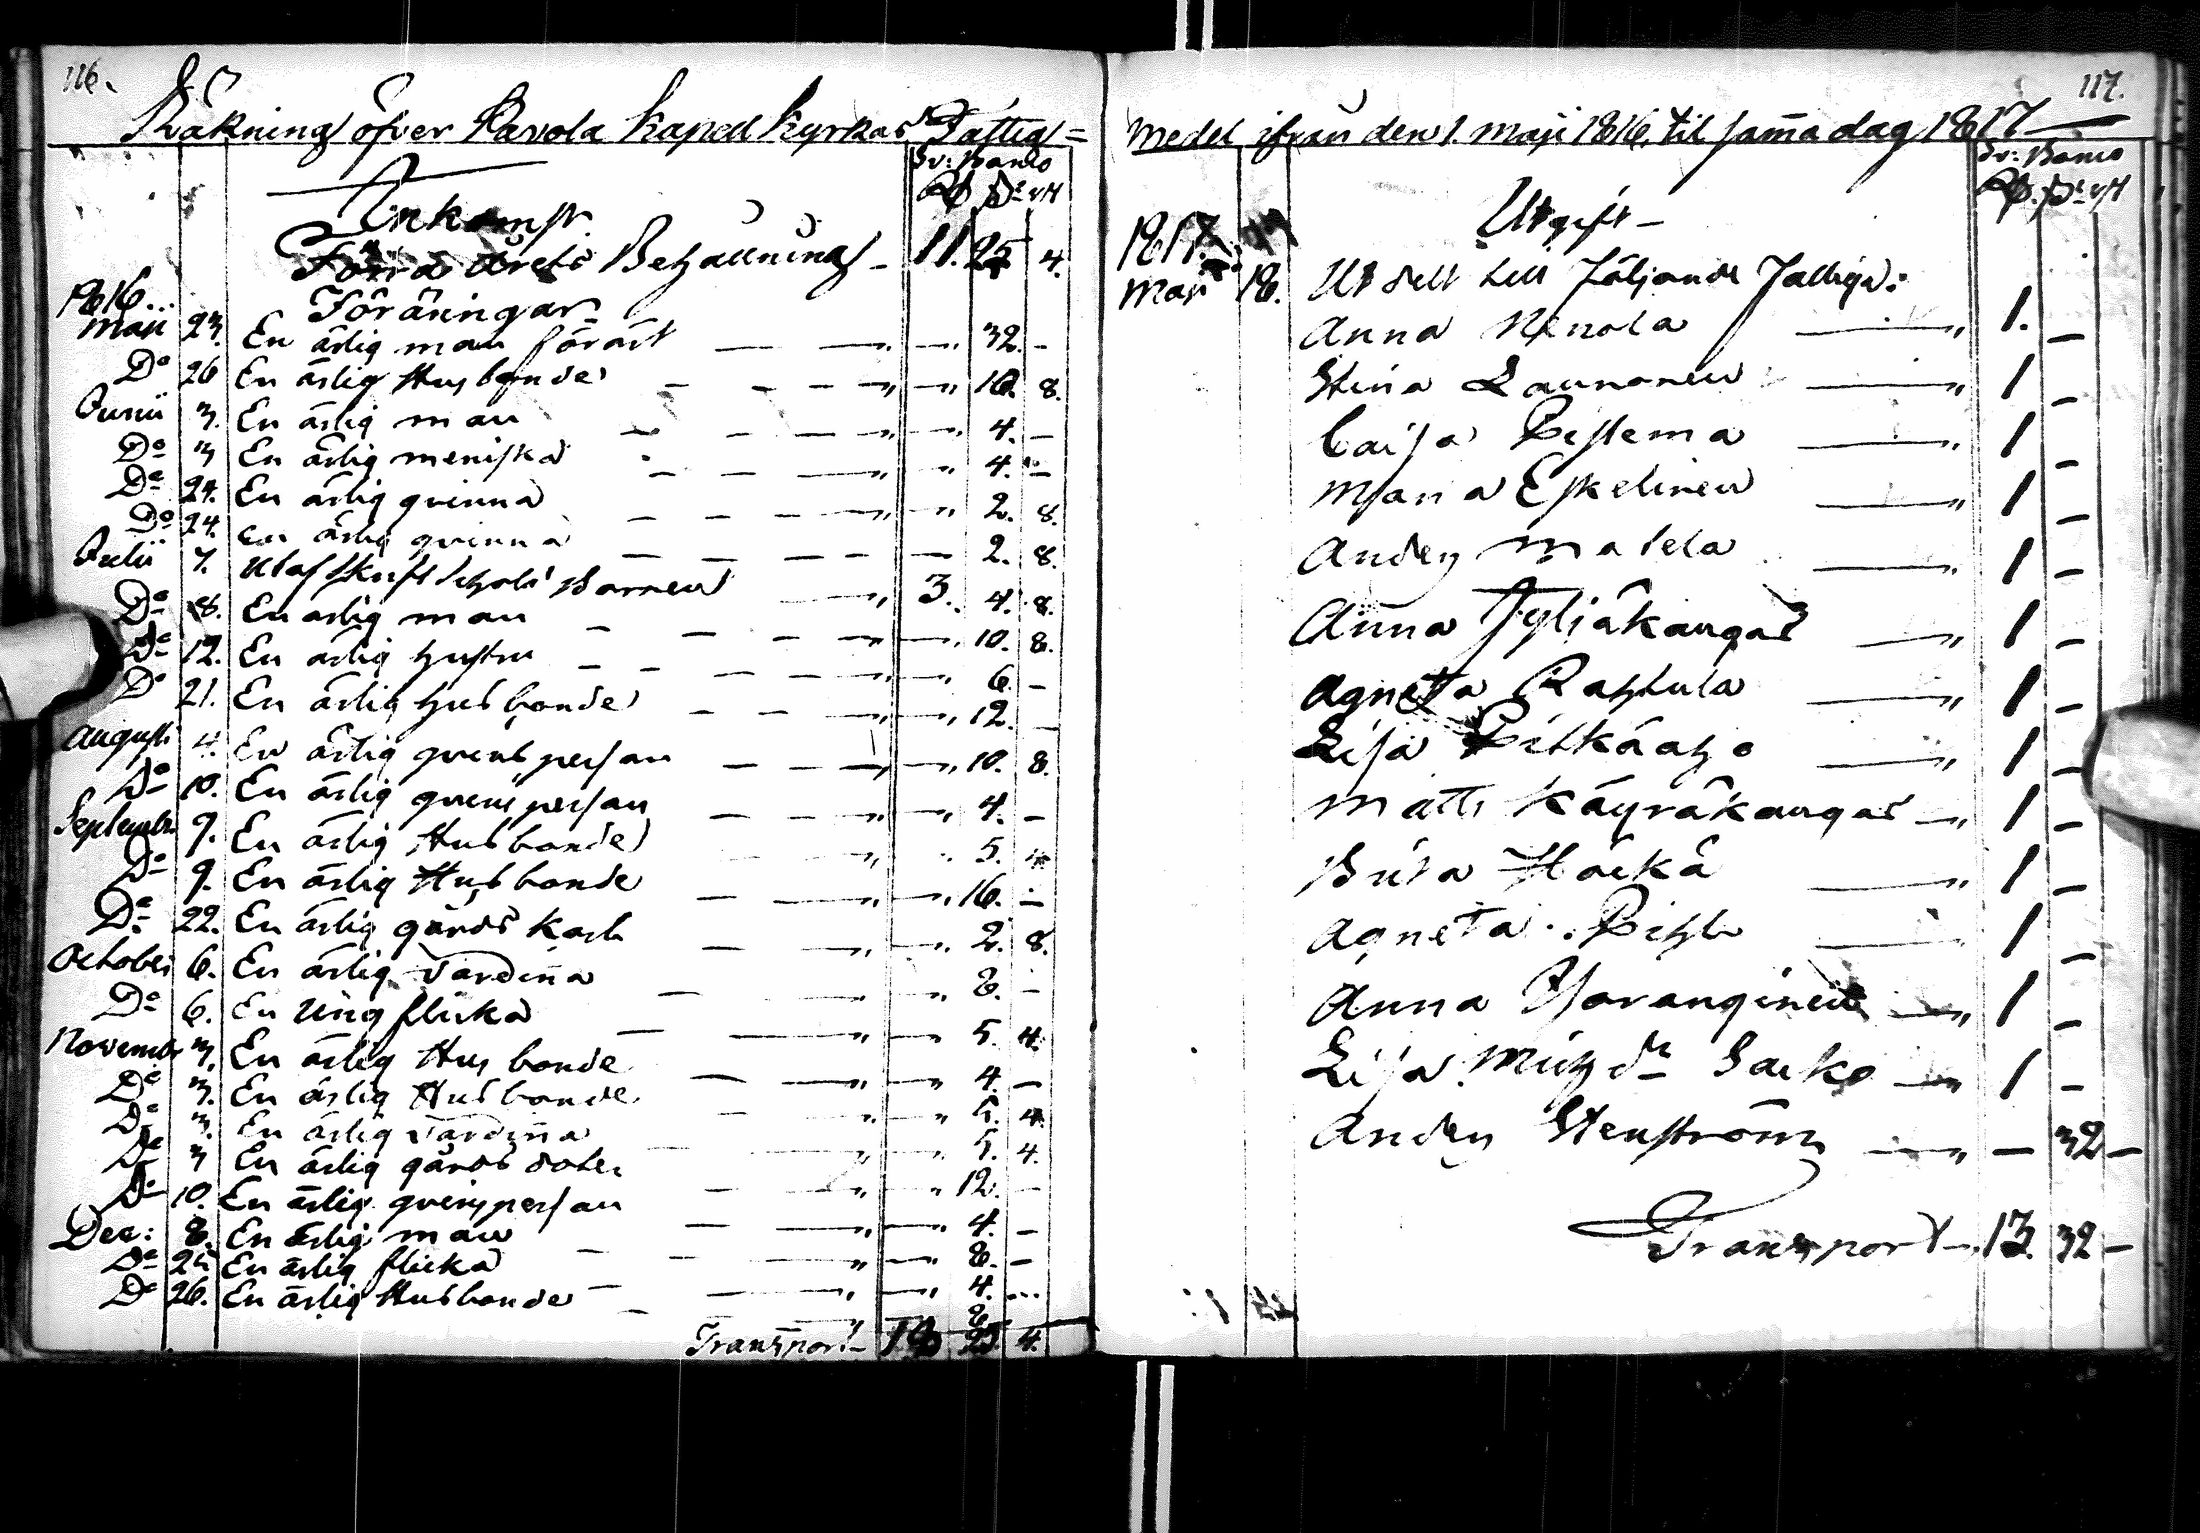 116.
Räkning öfver Pavola Kapell Kyrkas Fattig=
Sv: Banko
Rd. s. rst
Inkomst.
Förra Årets Behållning 11. 25 4.
1816. Föräringar
Maji 23. En ärlig man förärt — 32. —
Do 26 En ärlig Husbonde — 10. 8.
Junii 3. En ärlig man — 4. —
Do 3 En ärlig meniska — 4. —
Do 24. En ärlig qvinna — 2. 8.
Do 24. En ärlig qvinna — 2. 8.
Julii 7. Barnen 3. 4. 8.
Do 8. En ärlig man — 10. 8.
Do 12. En ärlig hustru — 6. —
Do 21. En ärlig husbonde — 12. —
Augusti 4. En ärlig qvinsperson — 10. 8.
Do 10. En ärlig qvinsperson — 4. —
Septembr 9. En ärlig Husbonde 5. 4.
Do 9. En ärlig Husbonde — 16. —
Do 22. En ärlig gårds karl — 2. 8.
October 6. En ärlig värdiña 8. —
Do 6. En ung flicka — 5. 4.
Novembr 3. En ärlig Husbonde — 4. —
Do 3. En ärlig Husbonde 5. 4.
Do 3. En ärlig värdiña 5. 4.
Do 3 En ärlig gårds doter 12. —
Do 10. En ärlig qvinsperson — 4. —
Dec: 8. En ärlig man — 8. —
Do 25 En ärlig flicka — 4. —
Do 26. En ärlig Husbonde 8.
Transport 19 23. 4.
117.
Medel ifrån den 1. Maji 1816. til sam̄a dag 1817
Sv: Banco
Rd. s. rst
Utgift
1817.
Maji 18. Utdelt till följande fattiga:
Anna Nenola 1. —
Stina Launonen 1 —
Caisa Pistema 1 —
Maria Eskelinen 1 —
Anders Matela 1 —
Anna Jyliäkangas 1 —
Agneta Rahtula 1 —
Lisa Pitkäaho 1 —
Matts Käyräkangas 1 —
Brita Härkä 1 —
Agneta Pihl 1 —
Anna Horanginen 1 —
Lisa Michdr Sarko 1 —
Anders Stenström — 32 —
Transport 13. 32 —